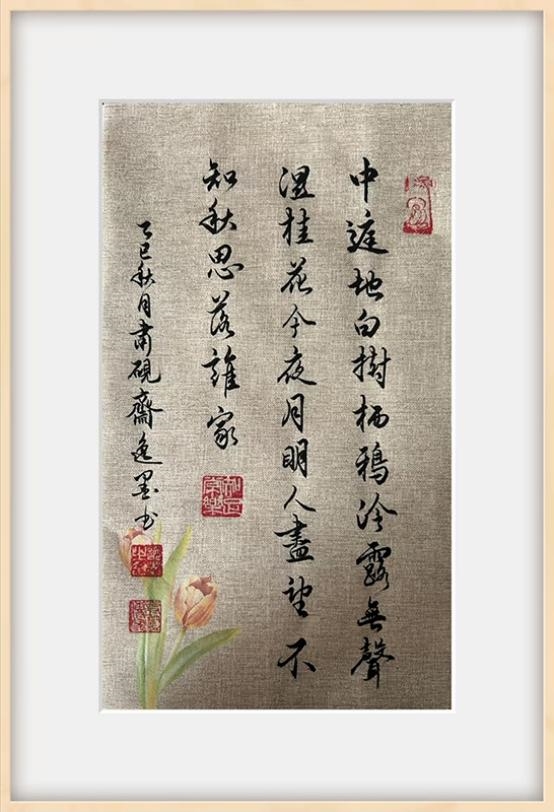 中庭地白樹栖鴉冷露無聲
湿桂花今夜月明人盡望不
知秋思落誰家
乙巳秋月硯齋逸墨书
知足常樂